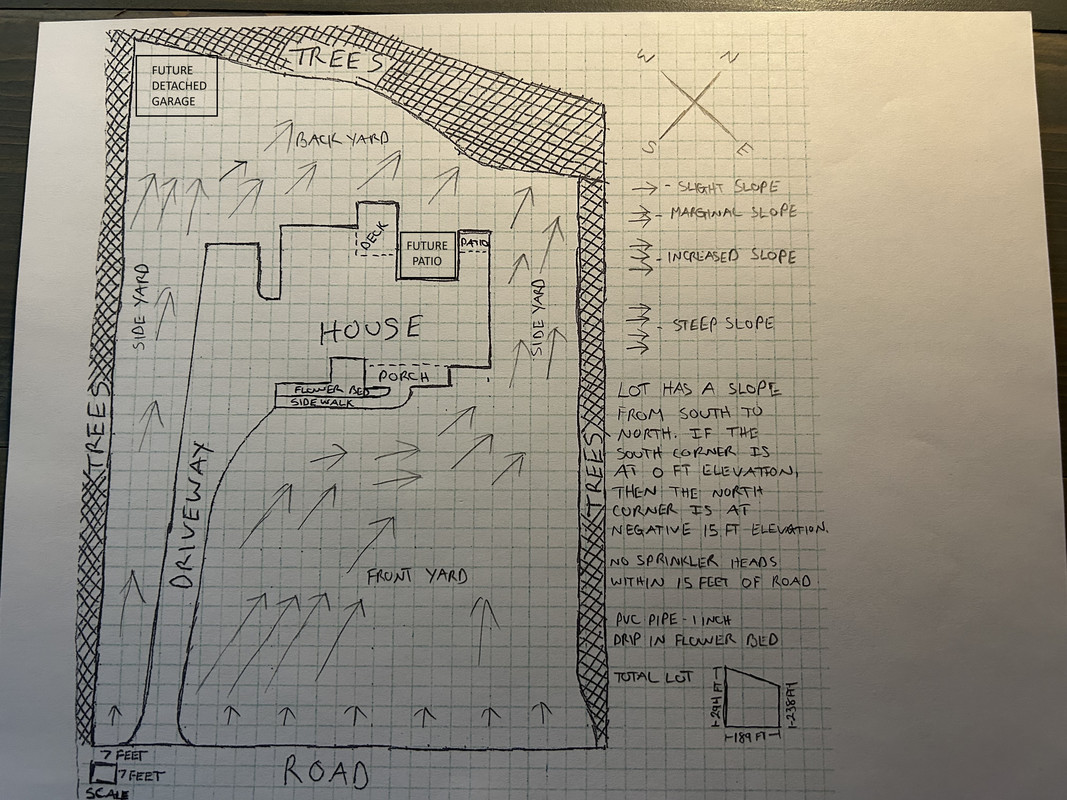 TREES
FUTURE
DETACHED
GARAGE
BACK YARD
W N
S E
→ - SLIGHT SLOPE
- MARGINAL SLOPE
- INCREASED SLOPE
- STEEP SLOPE
DECK
FUTURE
PATIO
PATIO
SIDE YARD
SIDE YARD
HOUSE
PORCH
FLOWER BED
SIDEWALK
TREES
TREES
DRIVEWAY
FRONT YARD
LOT HAS A SLOPE
FROM SOUTH TO
NORTH. IF THE
SOUTH CORNER IS
AT 0 FT ELEVATION,
THEN THE NORTH
CORNER IS AT
NEGATIVE 15 FT ELEVATION.
NO SPRINKLER HEADS
WITHIN 15 FEET OF ROAD
PVC PIPE - 1 INCH
DRIP IN FLOWER BED
TOTAL LOT
294 FT
238 FT
189 FT
7 FEET
7 FEET
SCALE
ROAD